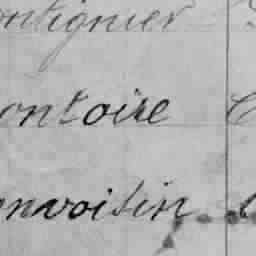 ontignier
ontoire
onvoisin